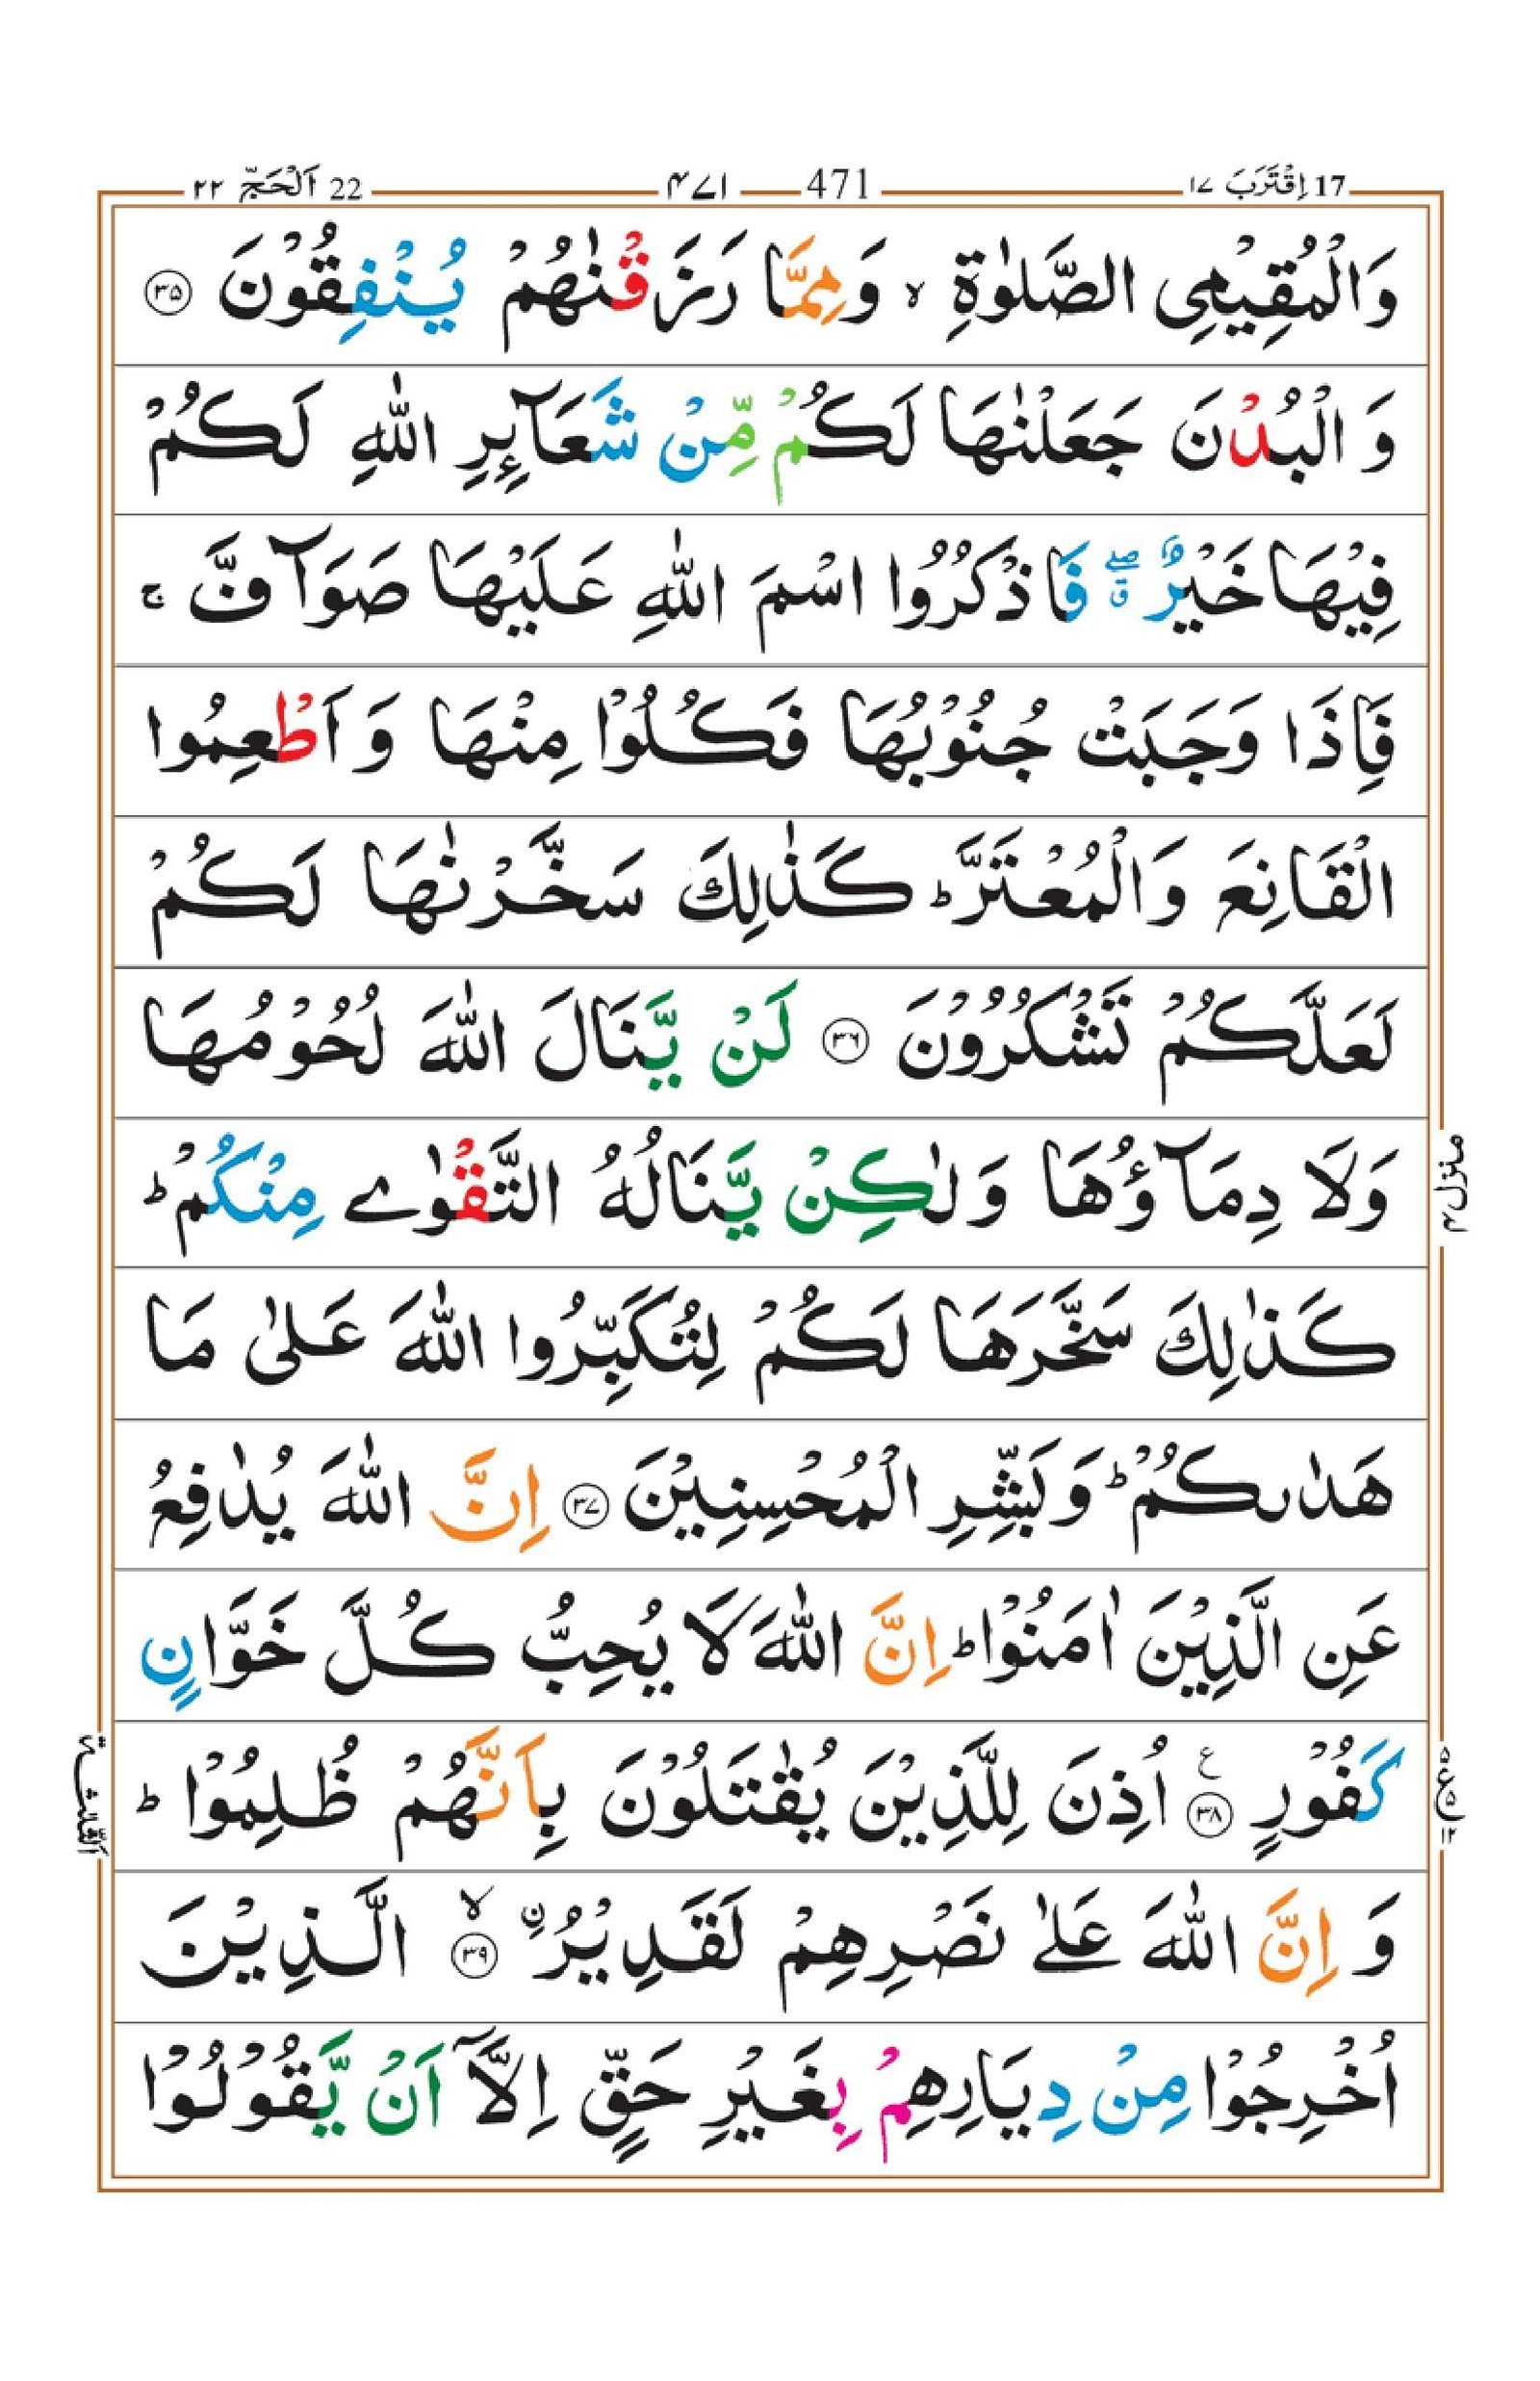 17 اِقْتَرَبَ ١٧
471 ٤٧١
22 اَلْحَجّ ٢٢
وَالْمُقِيْمِى الصَّلٰوةِ ۙ وَمِمَّا رَزَقْنٰهُمْ يُنْفِقُوْنَ ﴿۳۵﴾
وَ الْبُدْنَ جَعَلْنٰهَا لَكُمْ مِّنْ شَعَآئِرِ اللّٰهِ لَكُمْ
فِيْهَا خَيْرٌ ۖۗ فَاذْكُرُوا اسْمَ اللّٰهِ عَلَيْهَا صَوَآفَّ ۚ
فَاِذَا وَجَبَتْ جُنُوْبُهَا فَكُلُوْا مِنْهَا وَ اَطْعِمُوا
الْقَانِعَ وَالْمُعْتَرَّ ؕ كَذٰلِكَ سَخَّرْنٰهَا لَكُمْ
لَعَلَّكُمْ تَشْكُرُوْنَ ﴿۳۶﴾ لَنْ يَّنَالَ اللّٰهَ لُحُوْمُهَا
وَلَا دِمَآؤُهَا وَلٰكِنْ يَّنَالُهُ التَّقْوٰے مِنْكُمْ ؕ
كَذٰلِكَ سَخَّرَهَا لَكُمْ لِتُكَبِّرُوا اللّٰهَ عَلٰى مَا
هَدٰىكُمْ ؕ وَبَشِّرِ الْمُحْسِنِيْنَ ﴿۳۷﴾ اِنَّ اللّٰهَ يُدٰفِعُ
عَنِ الَّذِيْنَ اٰمَنُوْا ؕ اِنَّ اللّٰهَ لَا يُحِبُّ كُلَّ خَوَّانٍ
كَفُوْرٍ ﴿۳۸﴾ ع اُذِنَ لِلَّذِيْنَ يُقٰتَلُوْنَ بِاَنَّهُمْ ظُلِمُوْا ؕ
وَ اِنَّ اللّٰهَ عَلٰى نَصْرِهِمْ لَقَدِيْرُ ۨ ۙ ﴿۳۹﴾ الَّذِيْنَ
اُخْرِجُوْا مِنْ دِيَارِهِمْ بِغَيْرِ حَقٍّ اِلَّاۤ اَنْ يَّقُوْلُوْا
منزل ۴
۵ ع ۵ ۱۲
اَلثَّلٰثَة